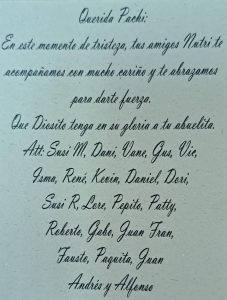 Querida Pachi:
En este momento de tristeza, tus amigos Nutri te
acompañamos con mucho cariño y te abrazamos
para darte fuerza.
Que Diosito tenga en su gloria a tu abuelita.
Att: Susi M, Dani, Vane, Gus, Vic,
Isma, René, Kevin, Daniel, Dori,
Susi R, Lore, Pepito, Patty,
Roberto, Gabo, Juan Fran,
Fausto, Paquita, Juan
Andrés y Alfonso